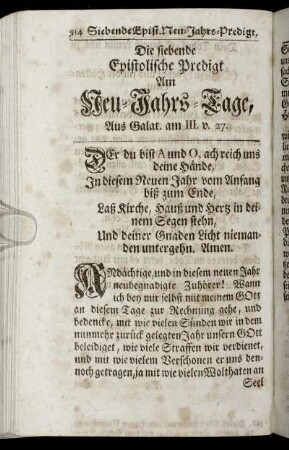 314 Siebende Epist. Neu-Jahrs-Predige,
Die siebende
Epistolische Predigt
Am
Neu-Jahrs-Tage,
Aus Galat. am III. v. 27.
DEr du bist A und O, ach reich uns
deine Hände,
In diesem Neuen Jahr vom Anfang
biß zum Ende,
Laß Kirche, Hauß und Hertz in dei-
nem Segen stehn,
Und deiner Gnaden Licht nieman-
den untergehn. Amen.
ANdächtige, und in diesem neuen Jahr
neubegnadigte Zuhörer! Wann
ich bey mir selbst mit meinem GOtt
an diesem Tage zur Rechnung gehe, und
bedencke, mit wie vielen Sünden wir in dem
nunmehr zurück gelegten Jahr unsern GOtt
beleidiget, wie viele Straffen wir verdienet,
und mit wie vielem Verschonen er uns den-
noch getragen, ja mit wie vielen Wolthaten an
Seel